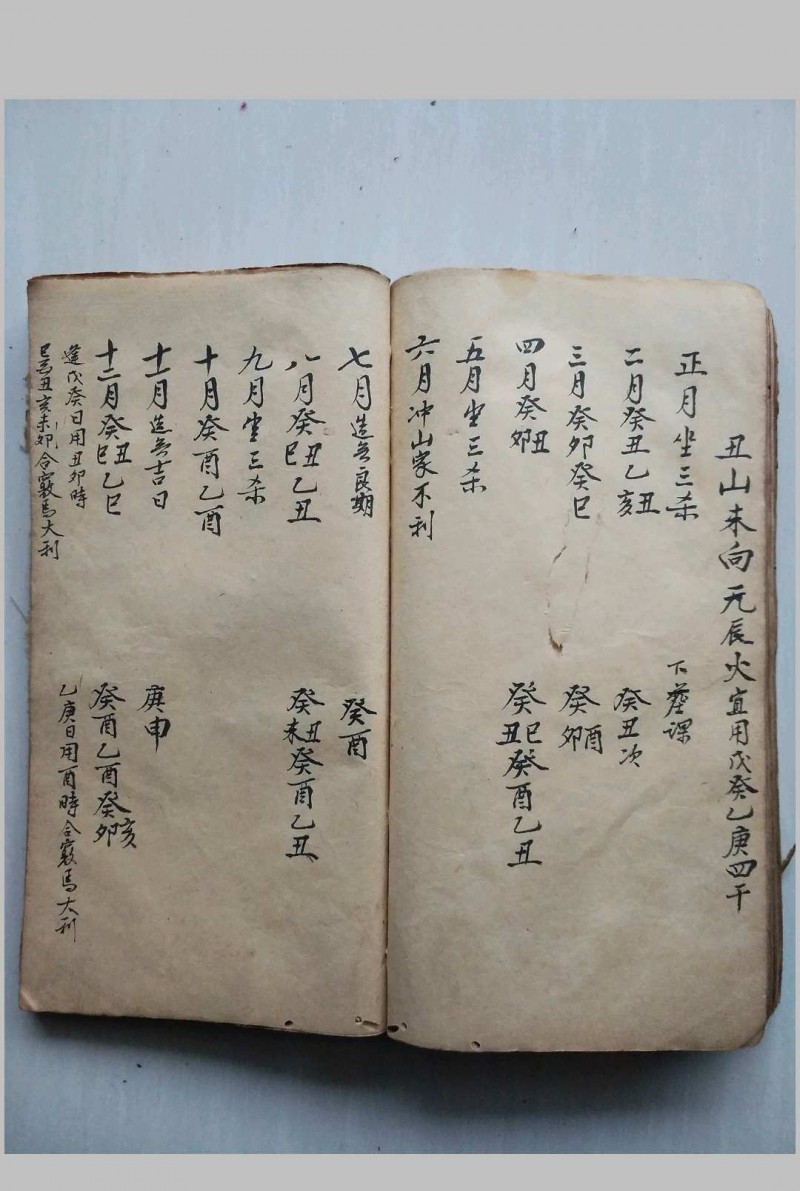 丑山未向元辰火宜用戊癸乙庚四干
正月坐三杀
下葬课
二月癸丑乙亥丑
癸丑次
三月癸卯癸巳
癸卯酉
四月癸卯丑
癸丑巳癸酉乙丑
五月坐三杀
六月冲山家不利
七月造無良期
癸酉
八月癸巳丑乙丑
癸未丑癸酉乙丑
九月坐三杀
十月癸酉乙酉
十一月造無吉日
庚申
十二月癸巳丑乙巳
癸酉乙酉癸卯亥
逢戊癸日用丑卯時
乙庚日用酉時合竅馬大利
巳馬丑亥未卯合竅馬大利